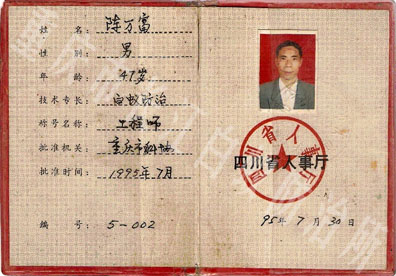 姓 名: 陈万富
性 别: 男
年 龄: 47岁
技术专长: 白蚁防治
称号名称: 工程师
批准机关: 重庆市科协
批准时间: 1995年7月
编 号: 5-002
四川省人事厅
四川省人事厅
95年7月30日